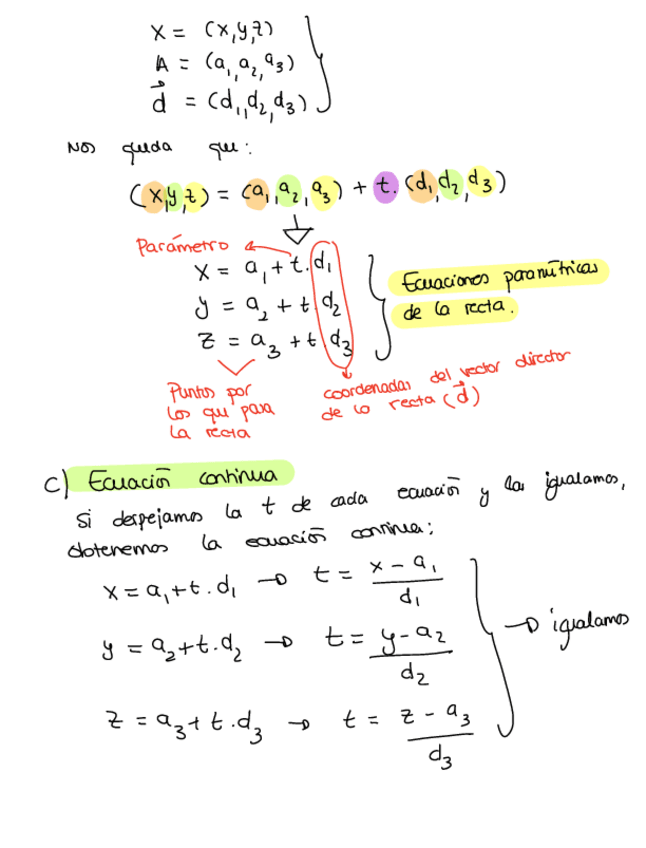 X = (x,y,z)
A = (a₁,a₂,a₃)
d⃗ = (d₁,d₂,d₃)
Nos queda que:
(x,y,z) = (a₁,a₂,a₃) + t.(d₁,d₂,d₃)
Parámetro
x = a₁ + t.d₁
y = a₂ + t d₂
z = a₃ + t d₃
Ecuaciones paramétricas
de la recta.
Puntos por
los que pasa
la recta
coordenadas del vector director
de la recta (d⃗)
c) Ecuación continua
Si despejamos la t de cada ecuación y las igualamos,
obtenemos la ecuación continua:
x = a₁+t.d₁ → t = (x - a₁)/d₁
y = a₂+t.d₂ → t = (y-a₂)/d₂
z = a₃+t.d₃ → t = (z - a₃)/d₃
→ igualamos